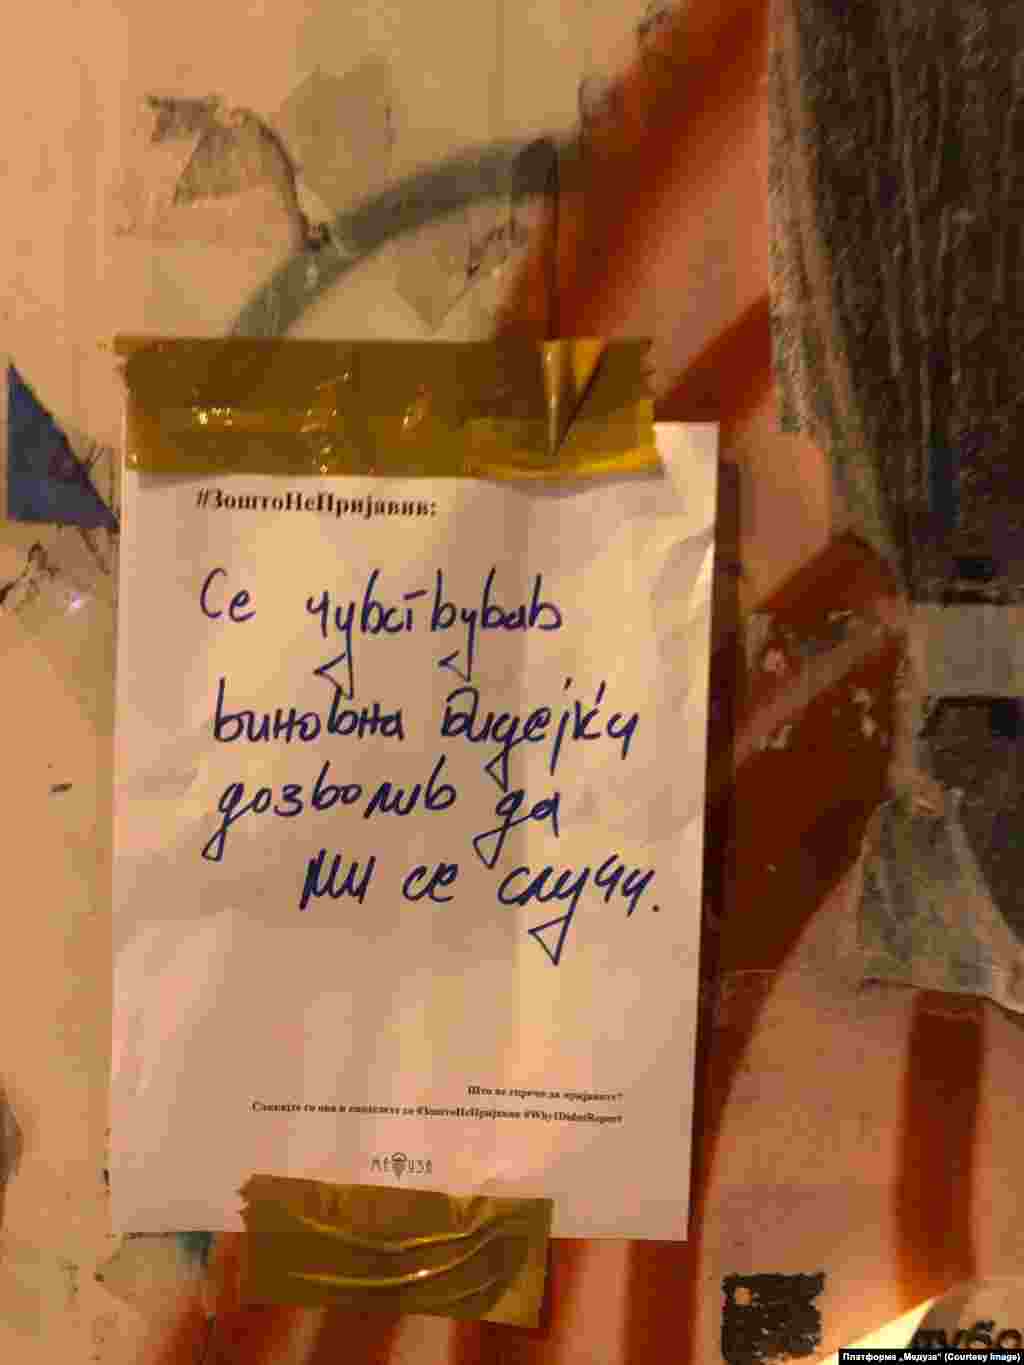 #ЗоштоНеПријавив:
Се чувствував
виновна бидејќи
дозволив да
ми се случи.
Што ве спречи да пријавите?
Сликајте го ова и споделете со #ЗоштоНеПријавив #WhyIDidntReport
медуза
Платформа „Медуза" (Courtesy Image)